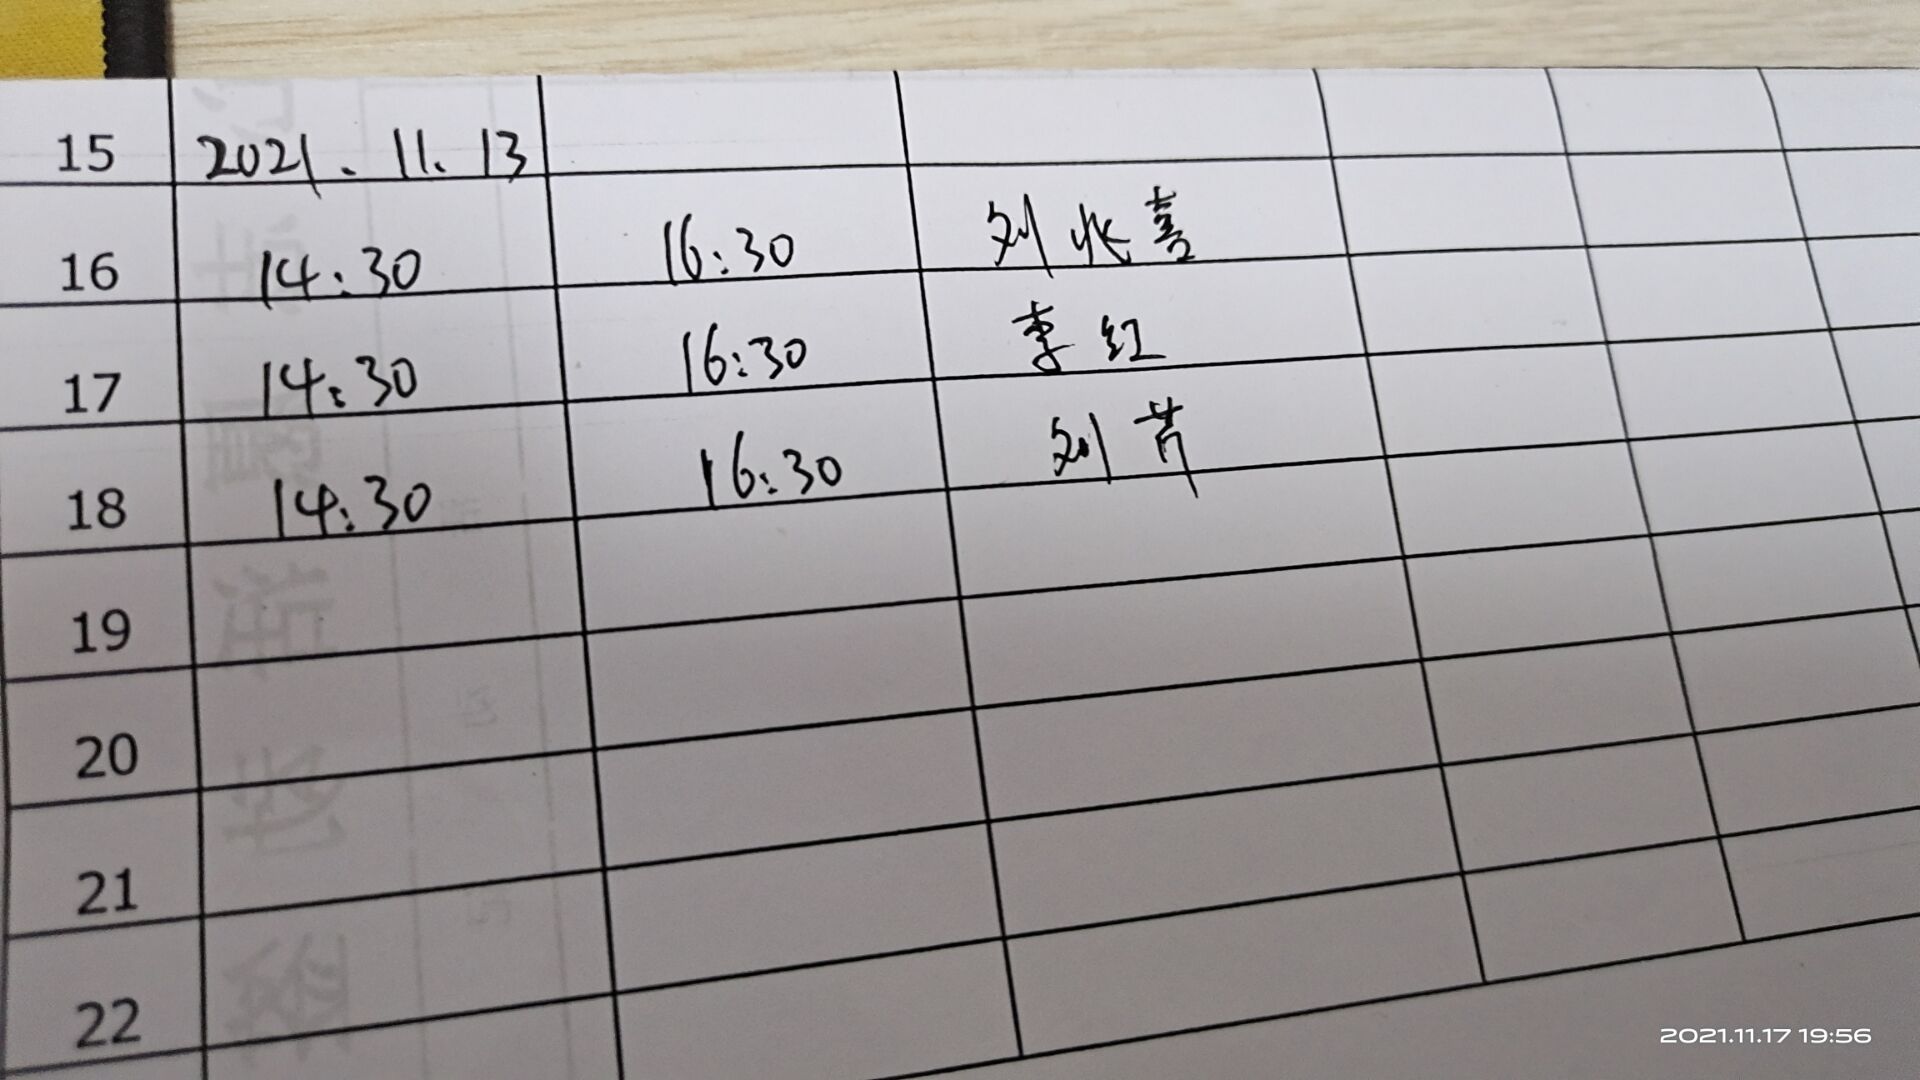 15 2021.11.13
16 14:30 16:30 刘兆喜
17 14:30 16:30 李红
18 14:30 16:30 刘芹
19
20
21
22
2021.11.17 19:56